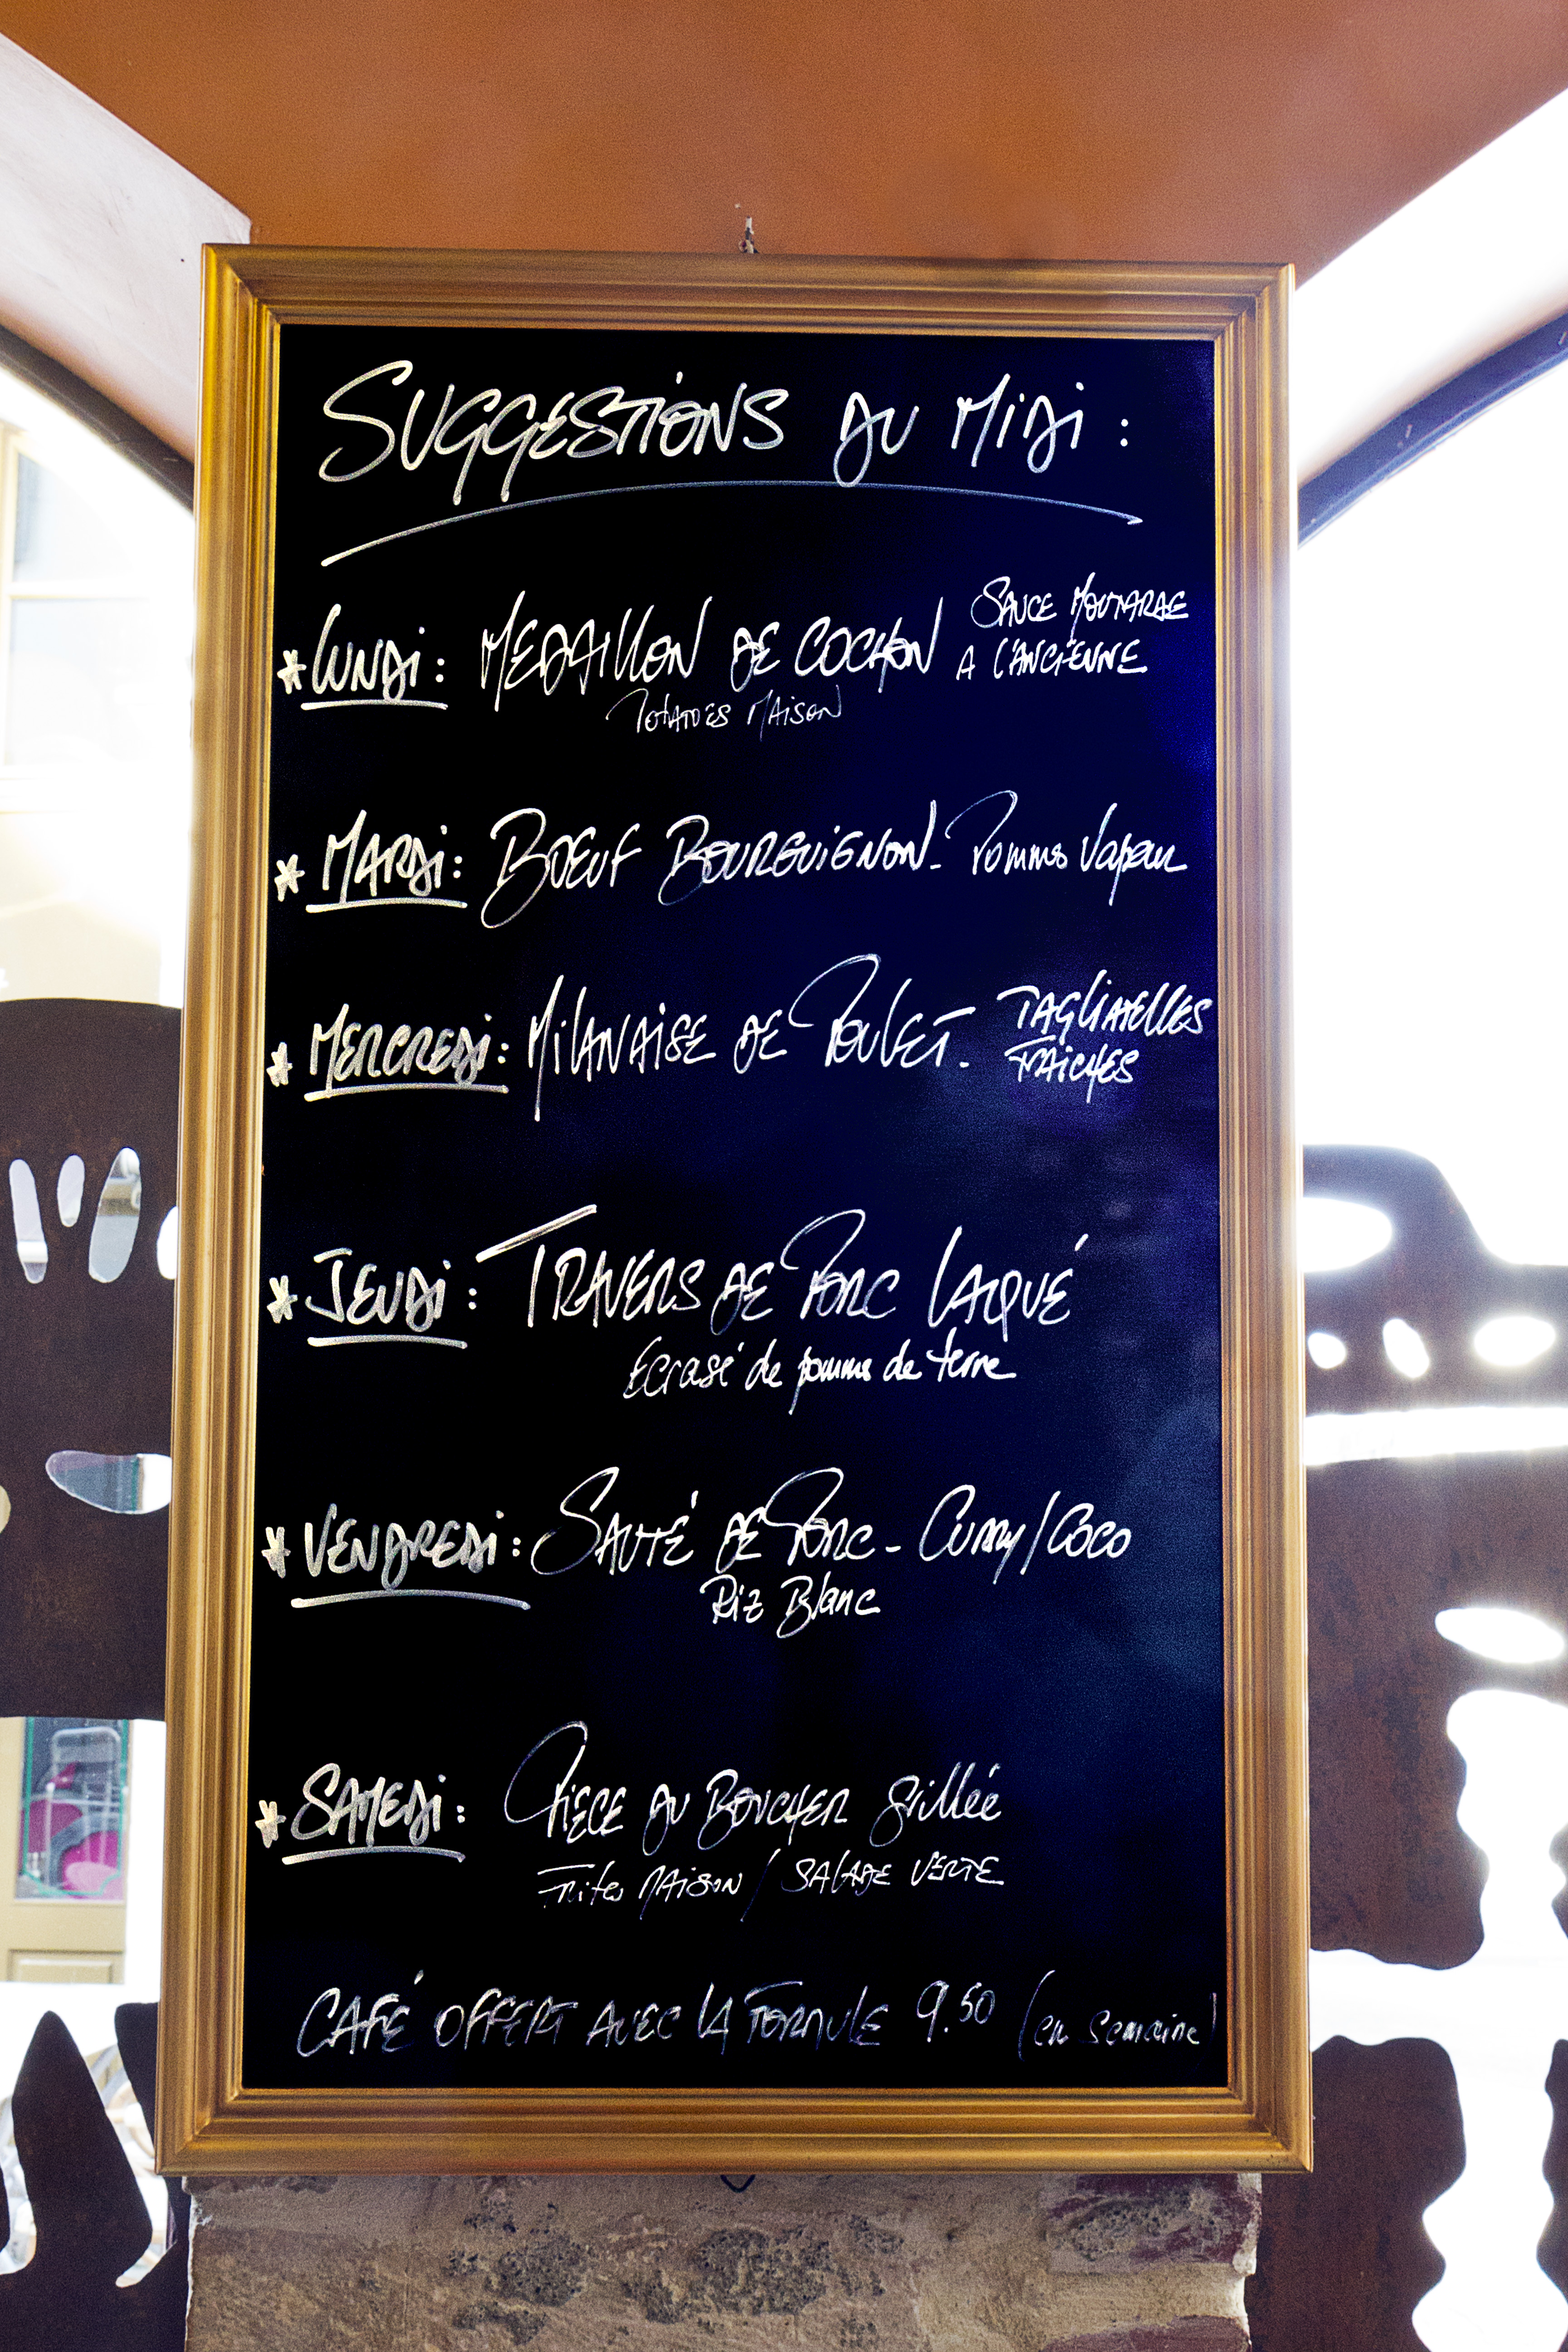 SUGGESTIONS DU MIDI :
* LUNDI : MEDAILLON DE COCHON SAUCE MOUTARDE
A L'ANCIENNE
POTATOES MAISON
* MARDI : BOEUF BOURGUIGNON - Pommes Vapeur
* MERCREDI : MILANAISE DE POULET - TAGLIATELLES
FRAICHES
* JEUDI : TRAVERS DE PORC LAQUÉ
Ecrasé de pomme de terre
* VENDREDI : SAUTÉ DE PORC - CURRY/COCO
Riz Blanc
* SAMEDI : PIECE DU BOUCHER grillée
Frites MAISON / SALADE VERTE
CAFÉ OFFERT AVEC LA FORMULE 9.50 (en semaine)